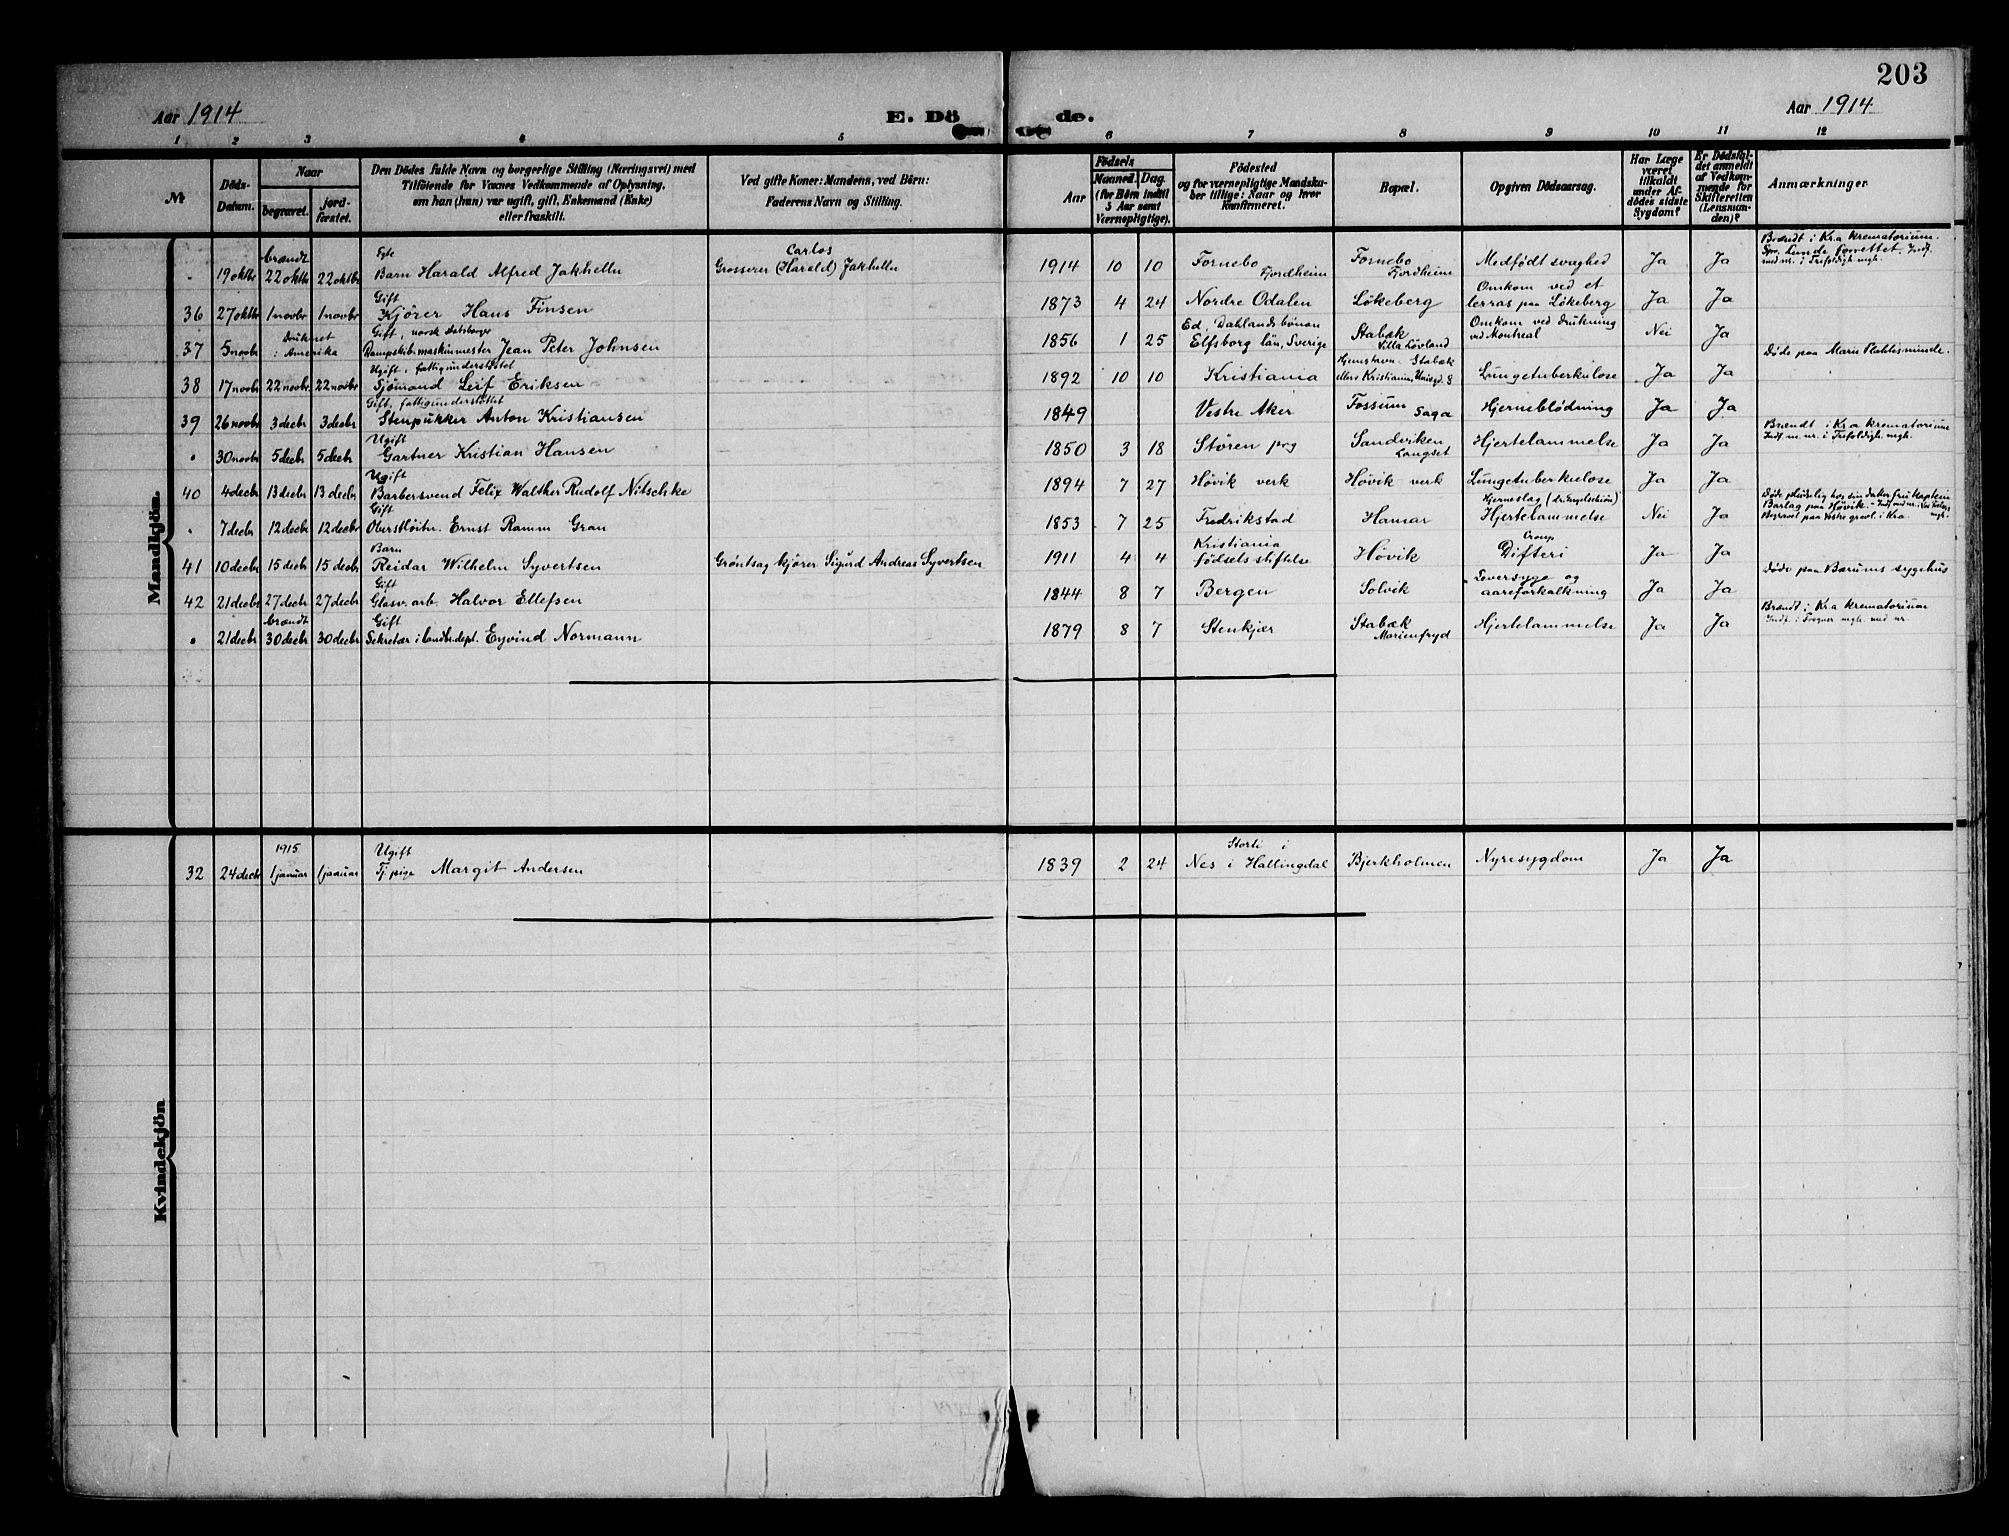 203
Aar 1914 E. Dö de. Aar 1914
1 2 3 4 5 6 7 8 9 10 11 12
№ Döds-Datum. Naar begravet. jord-fæstet. Den Dödes fulde Navn og borgerlige Stilling (Næringsvei) med Tilföiende for Voxnes Vedkommende af Oplysning, om han (hun) var ugift, gift, Enkemand (Enke) eller fraskilt. Ved gifte Koner: Mandens, ved Børn: Faderens Navn og Stilling. Födsels Aar Maaned. Dag. (for Børn indtil 5 Aar samt Værnepligtige). Födested og for værnepligtige Mandskaber tillige: Naar og hvor konfirmeret. Bopæl. Opgiven Dödsaarsag. Har Læge været tilkaldt under Afdödes sidste Sygdom? Er Dödsfaldet anmeldt af Vedkommende for Skifteretten (Lensmanden)? Anmærkninger
Mandkjön.
brændt Carlos Brændt i Kr.a krematorium.
" 19 oktbr 22 oktbr 22 oktbr Barn Harald Alfred Jakhelln Grosserer (Harald) Jakhelln 1914 10 10 Fornebo Fjordheim Fornebo Fjordheim Medfødt svaghed Ja Ja
Gift Omkom ved et
36 27 oktbr 1 novbr 1 novbr Kjører Hans Finsen 1873 4 24 Nordre Odalen Løkeberg lerras paa Løkeberg Ja Ja
Druknet Gift, norsk statsborger Ed, Dahlands Omkom ved drukning
37 5 novbr i Amerika Dampskib.maskinmester Jean Peter Johnsen 1856 1 25 Elfsborg län, Sverige Stabæk Villa Løvland ved Montreal Nei Ja
Ugift, fattigunderstøttet Stabæk Døde paa
38 17 novbr 22 novbr 22 novbr Sjømand Leif Eriksen 1892 10 10 Kristiania Lungetuberkulose Ja Ja
Gift, fattigunderstøttet
39 26 novbr 3 decbr 3 decbr Stenpukker Anton Kristiansen 1849 Vestre Aker Fossum Saga Hjerneblødning Ja Ja
Ugift Brændt i Kr.a krematorium
" 30 novbr 5 decbr 5 decbr Gartner Kristian Hansen 1850 3 18 Støren prg Sandviken Langset Hjertelammelse Ja Ja Indf. m. nr. i Trefoldigh. mgh.
Ugift
40 4 decbr 13 decbr 13 decbr Barbersvend Felix Walther Rudolf Nitschke 1894 7 27 Høvik verk Høvik verk Lungetuberkulose Ja Ja
Gift Hjerneslag
" 7 decbr 12 decbr 12 decbr Oberstløitn. Ernst Ramm Gran 1853 7 25 Fredrikstad Hamar Hjertelammelse Nei Ja Begravet paa Vestre gravl. i Kr.a
Barn Kristiania Croup
41 10 decbr 15 decbr 15 decbr Reidar Wilhelm Syvertsen Grøntsag kjører Sigurd Andreas Syvertsen 1911 4 4 fødselsstiftelse Høvik Difteri Ja Ja
Gift Leversyge og Døde paa Bærums sygehus
42 21 decbr 27 decbr 27 decbr Glasv. arb. Halvor Ellefsen 1844 8 7 Bergen Solvik aareforkalkning Ja Ja
brændt Gift Brændt i Kr.a krematorium
" 21 decbr 30 decbr 30 decbr Sekretær i landbr.dept. Eyvind Normann 1879 8 7 Stenkjær Stabæk Marienfryd Hjertelammelse Ja Ja Indf. i Frogner mgh. med nr.
Kvindekjön
1915 Ugift
32 24 decbr 1 januar 1 januar Tj.pige Margit Andersen 1839 2 24 Nes i Hallingdal Bjerkholmen Nyresygdom Ja Ja